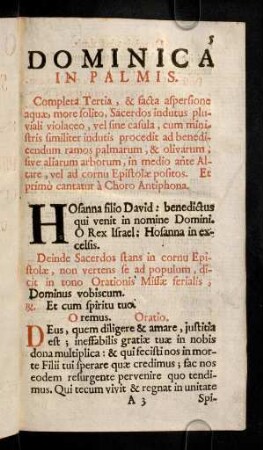 5
DOMINICA
IN PALMIS.
Completa Tertia, & facta aspersione
aquæ more solito, Sacerdos indutus plu-
viali violaceo, vel sine casula, cum mini-
stris similiter indutis procedit ad bene di-
cendum ramos palmarum, & olivarum,
sive aliarum arborum, in medio ante Al-
tare, vel ad cornu Epistolæ positos. Et
primò cantatur à Choro Antiphona.
HOsanna filio David: benedictus
qui venit in nomine Domini.
O Rex Israel: Hosanna in ex-
celsis.
Deinde Sacerdos stans in cornu Epi-
stolæ, non vertens se ad populum, di-
cit in tono Orationis Missæ ferialis;
Dominus vobiscum.
℟. Et cum spiritu tuo.
Oremus. Oratio.
DEus, quem diligere & amare, justitia
est; ineffabilis gratiæ tuæ in nobis
dona multiplica: & qui fecisti nos in mor-
te Filii tui sperare quæ credimus; fac nos
eodem resurgente pervenire quo tendi-
mus. Qui tecum vivit & regnat in unitate
A 3 Spi-